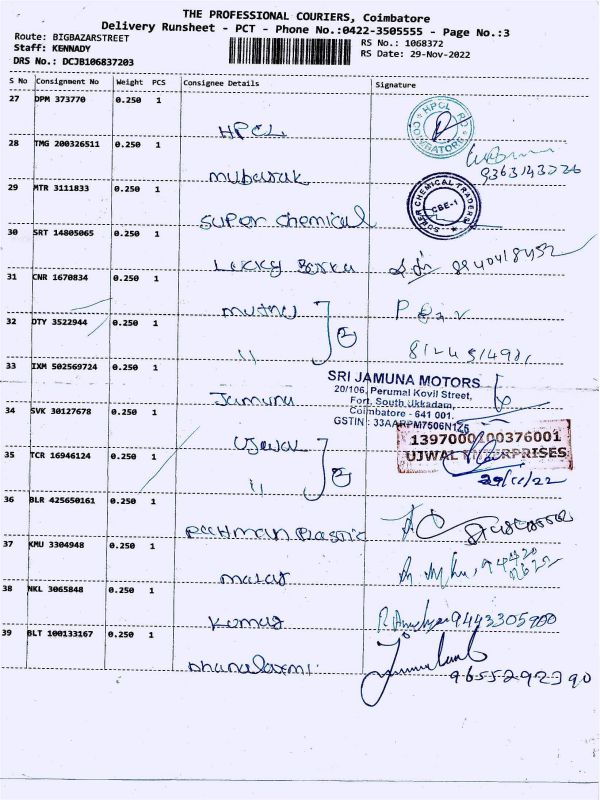 THE PROFESSIONAL COURIERS, Coimbatore
Delivery Runsheet - PCT - Phone No.:0422-3505555 - Page No.:3
Route: BIGBAZARSTREET
Staff: KENNADY
DRS No.: DCJB106837203
RS No.: 1068372
RS Date: 29-Nov-2022
S No Consignment No Weight PCS Consignee Details Signature
27 DPM 373770 0.250 1
HPCL
HPCL RO COIMBATORE
28 TMG 200326511 0.250 1
mubarak
9363143226
29 MTR 3111833 0.250 1
super chemical
SUPER CHEMICAL TRADERS CBE-1
30 SRT 14805065 0.250 1
Lucky
31 CNR 1670834 0.250 1
muthu
32 DTY 3522944 0.250 1
11 2
33 IXM 502569724 0.250 1
Jamuna
SRI JAMUNA MOTORS
20/106, Perumal Kovil Street,
Fort, South Ukkadam,
Coimbatore - 641 001.
34 SVK 30127678 0.250 1
ujwal
1397000100376001
UJWAL ENTERPRISES
35 TCR 16946124 0.250 1
11 2
29/11/22
36 BLR 425650161 0.250 1
Rathman Plastic
37 KMU 3304948 0.250 1
38 NKL 3065848 0.250 1
Kumar
9443305900
39 BLT 100133167 0.250 1
Dhanalaxmi
9655292390